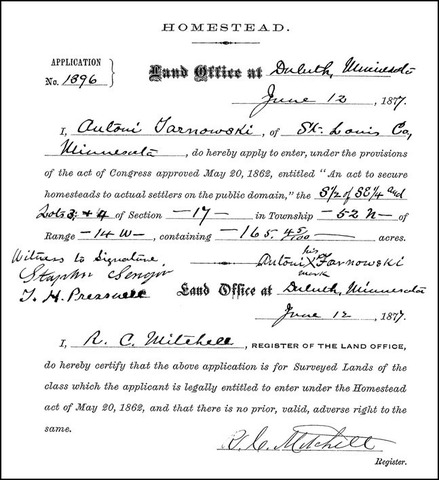 HOMESTEAD.
APPLICATION
No. 1896
Land Office at Duluth, Minnesota
June 12, 1877.
I, Antoni Tarnowski, of St. Louis Co,
Minnesota, do hereby apply to enter, under the provisions
of the act of Congress approved May 20, 1862, entitled "An act to secure
homesteads to actual settlers on the public domain," the S1/2 of SE1/4 and
Lots 3 & 4 of Section —17— in Township —52 N— of
Range —14 W—, containing —165.45/100— acres.
Witness to Signature
his
Antoni X Tarnowski
mark
Stephen
T. H. Pressnell
Land Office at Duluth, Minnesota
June 12, 1877.
I, R. C. Mitchell, REGISTER OF THE LAND OFFICE,
do hereby certify that the above application is for Surveyed Lands of the
class which the applicant is legally entitled to enter under the Homestead
act of May 20, 1862, and that there is no prior, valid, adverse right to the
same.
R. C. Mitchell
Register.